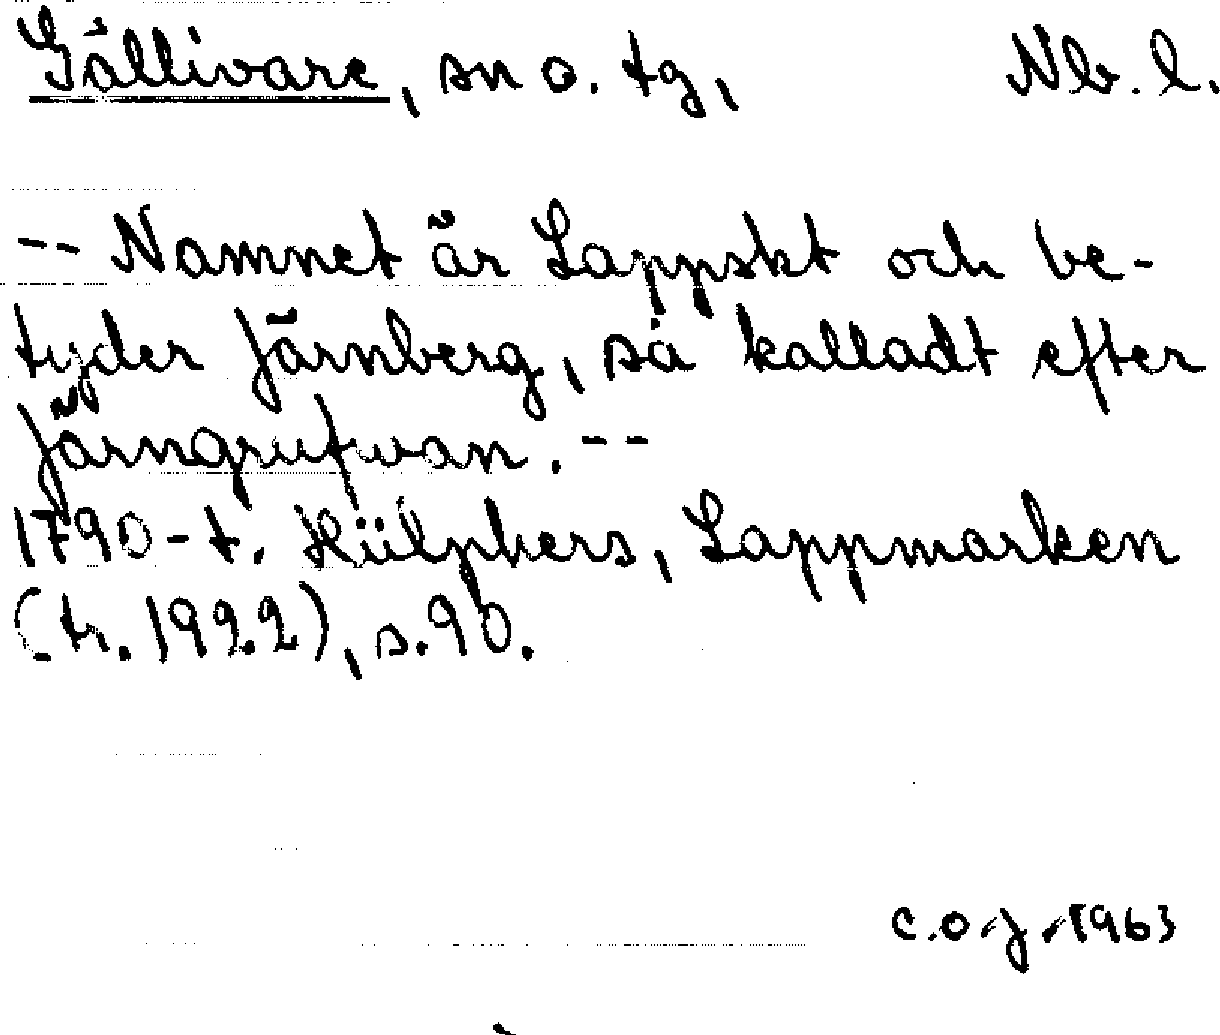 Gällivare, sn o. tg, Nb. l.
-- Namnet är Lappskt och be-
tyder Järnberg, så kalladt efter
Järngrufwan. --
1790-t. Hülphers, Lappmarken
(tr. 1922), s. 90.
C.O.J. 1963